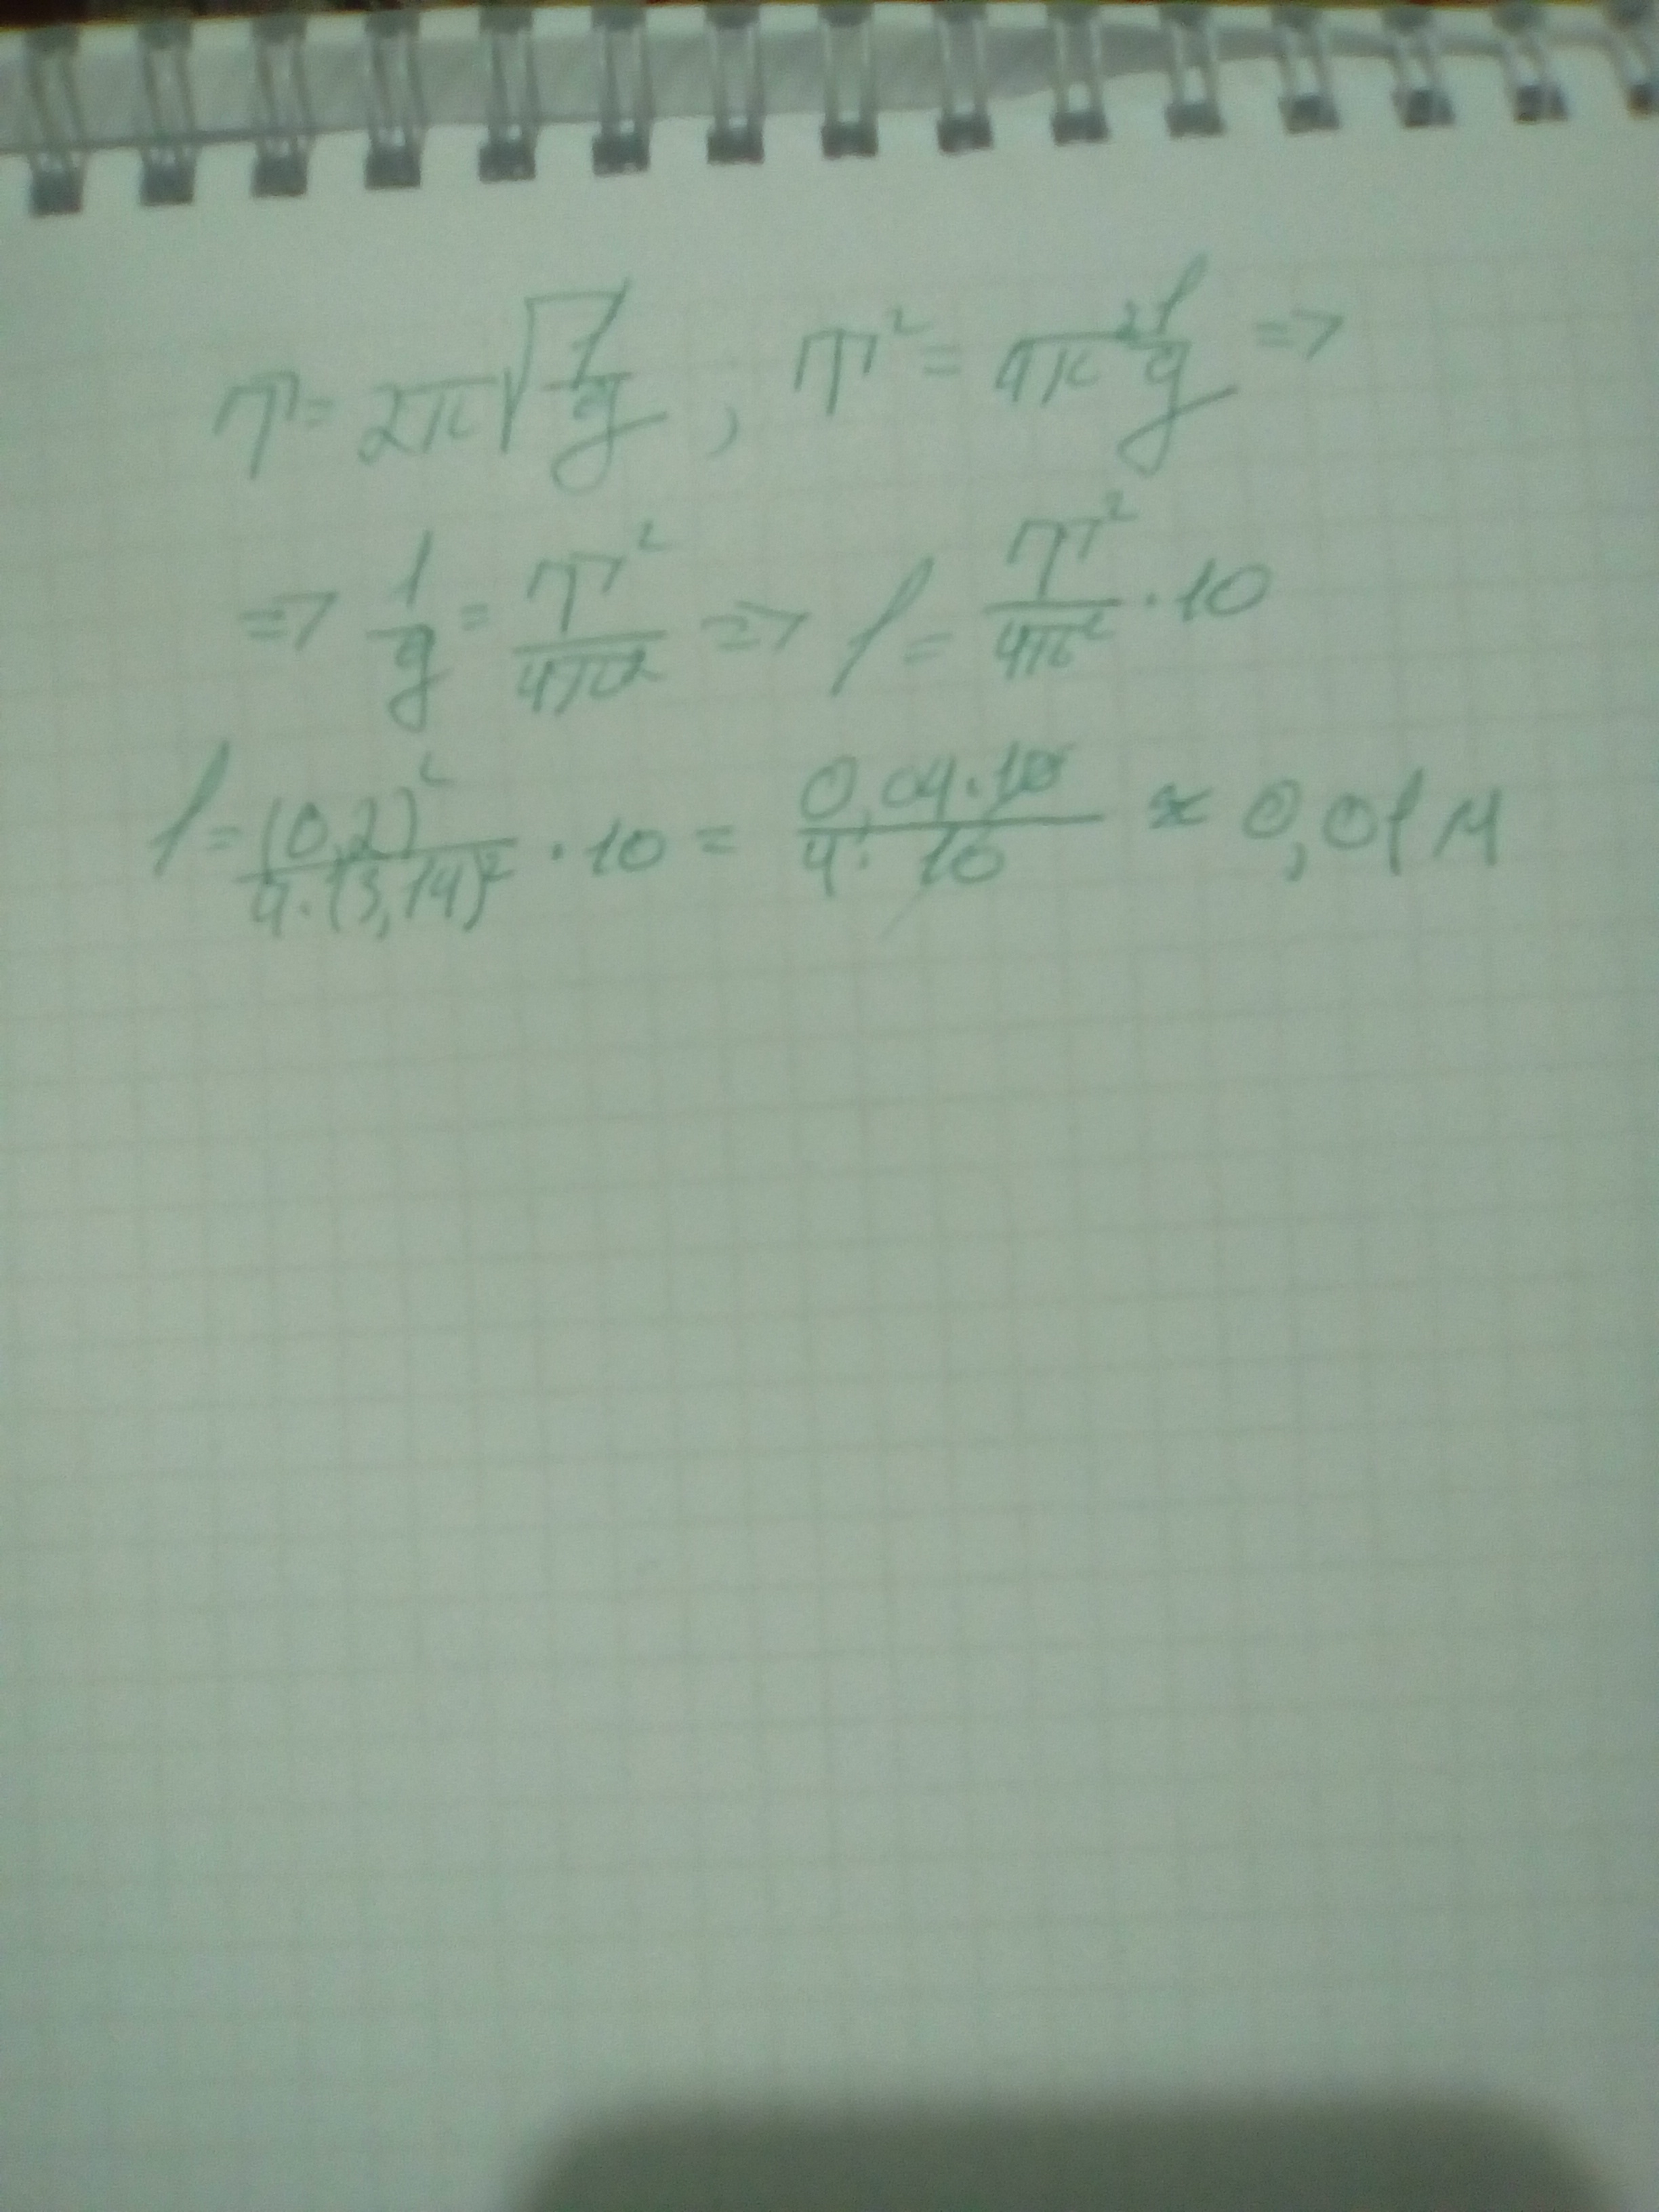 T = 2π√(l/g), T² = 4π² l/g =>
=> l/g = T²/4π² => l = T²/4π² · 10
l = (0,2)²/4·(3,14)² · 10 = 0,04·10/4·10 ≈ 0,01 м